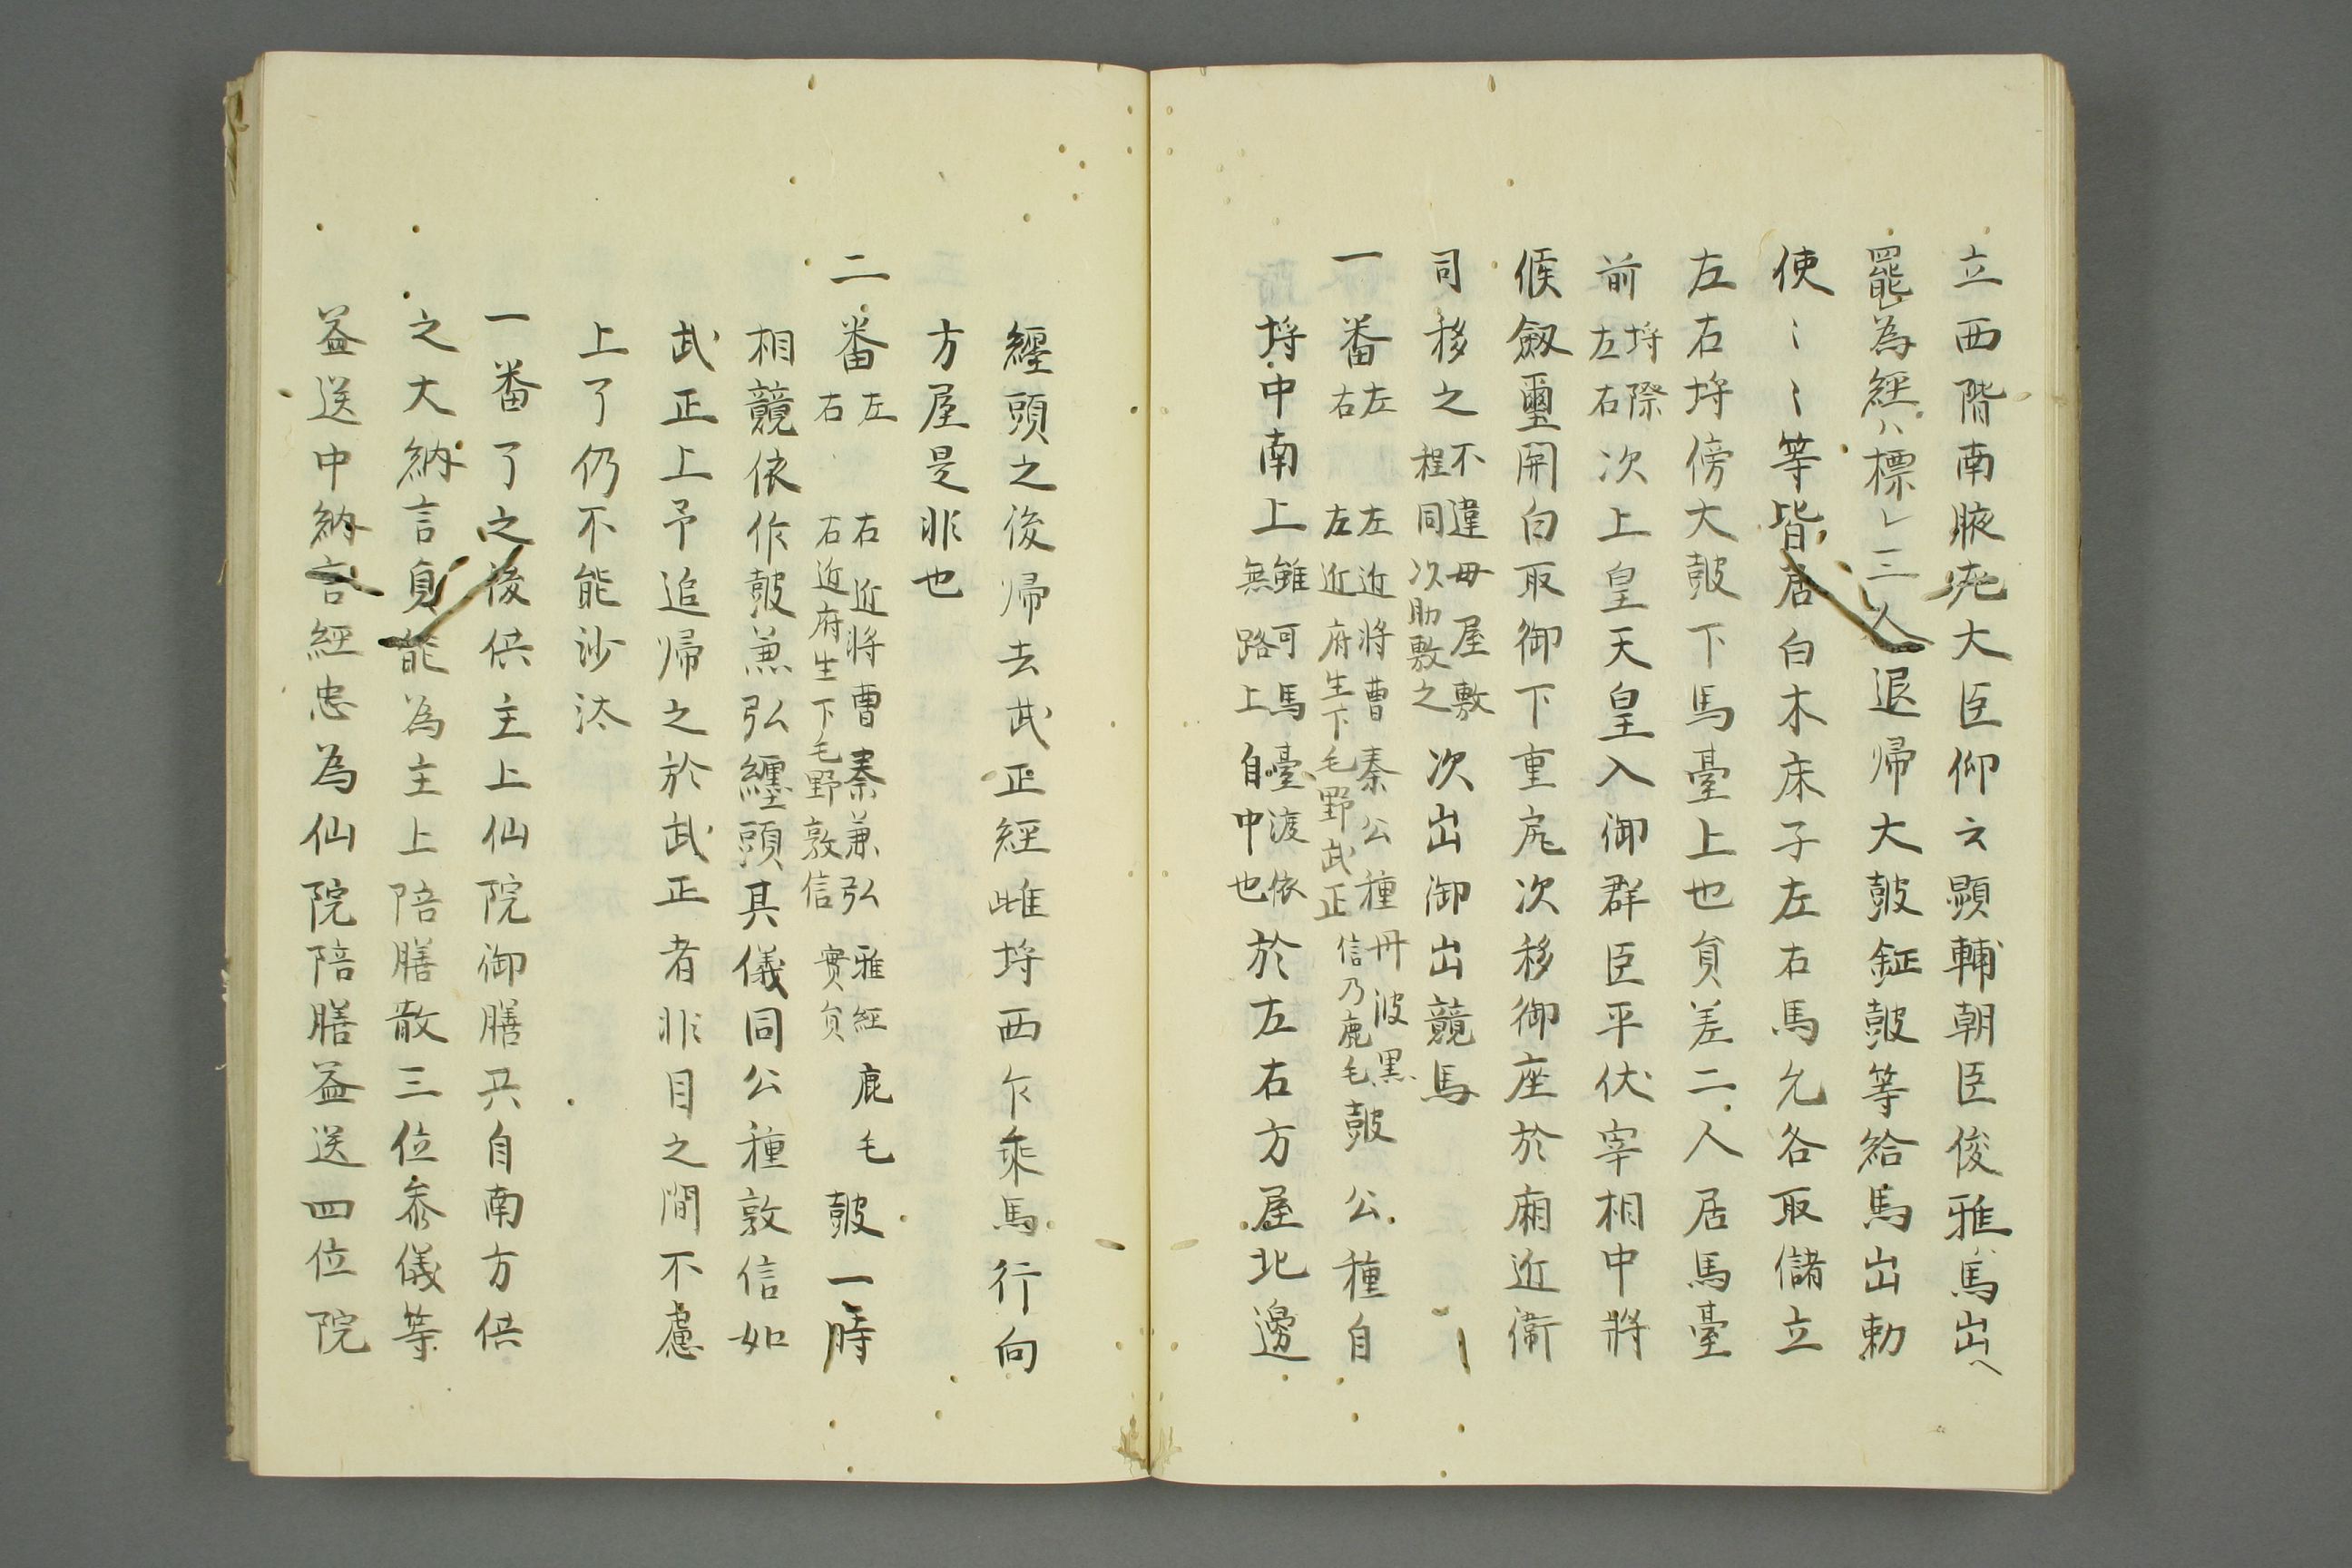 立西階南腋庇大臣仰云顕輔朝臣俊雅馬出ヘ
罷レ為経ハ標レ三人退帰大皷鉦皷等給馬出勅
使〻〻等皆居白木床子左右馬允各取儲立
左右埒傍大皷下馬臺上也負差二人居馬臺
前埒際左右次上皇天皇入御群臣平伏宰相中将
候劔璽開白取御下重尻次移御座於廂近衛
司移之不違母屋敷程同次助敷之次出御出競馬
一番左右左近将曹秦公種左近府生下毛野武正丹波黒信乃鹿毛皷公種自
埒中南上雖可馬臺渡依無路上自中也於左右方屋北邊
纒頭之後帰去武正経雌埒西乍乘馬行向
方屋是非也
二番左右右近将曹秦兼弘右近府生下毛野敦信雅経實負鹿毛皷一時
相競依作皷兼弘纒頭其儀同公種敦信如
武正上予追帰之於武正者非目之間不慮
上了仍不能沙汰
一番了之後供主上仙院御膳共自南方供
之大納言負能為主上陪膳散三位参儀等
益送中納言経忠為仙院陪膳益送四位院